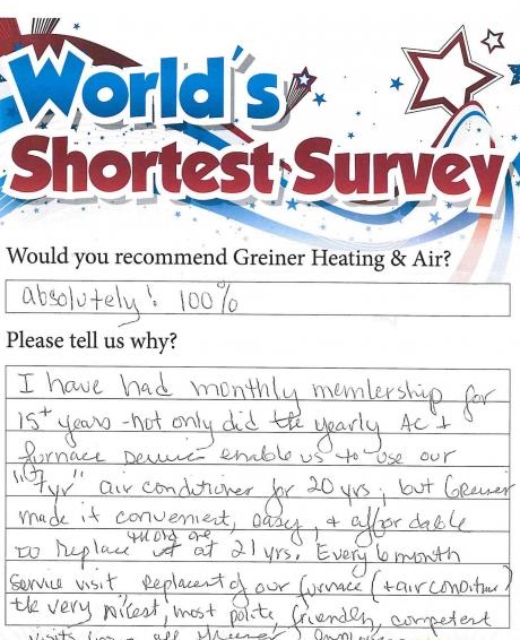 World's
Shortest Survey
Would you recommend Greiner Heating & Air?
absolutely! 100%
Please tell us why?
I have had monthly memlership for
15+ years - not only did the yearly AC +
furnace service enable us to use our
"17 yr" air conditioner for 20 yrs; but Greiner
made it convenient, easy, + affordable
the old one
to replace at 21 yrs. Every 6 month
service visit, replacent of our furnace (+ air condition)
the very nicest, most polite, friendly, competent
visits all Greiner